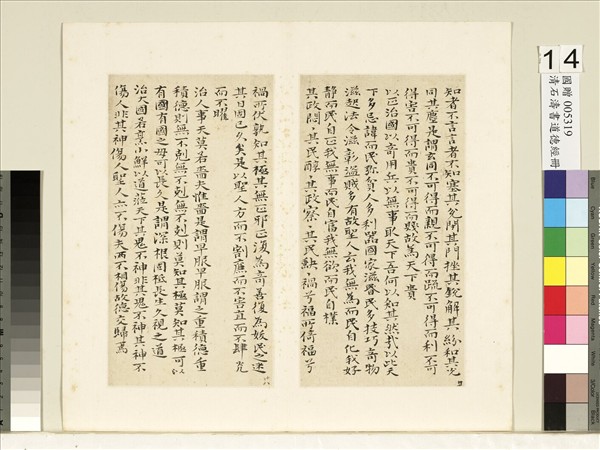 知者不言言者不知塞其兌閉其門挫其銳解其紛和其光
同其塵是謂玄同不可得而親不可得而疏不可得而利不可
得害不可得而貴不可得而賤故為天下貴
以正治國以奇用兵以無事取天下吾何以知其然哉以此天
下多忌諱而民彌貧人多利器國家滋昏民多技巧奇物
滋起法令滋彰盜賊多有故聖人云我無為而民自化我好
靜而民自正我無事而民自富我無欲而民自樸
其政悶〻其民醇〻其政察〻其民缺〻禍兮福所倚福兮
禍所伏孰知其極其無正邪正復為奇善復為妖民之迷
其日固已久矣是以聖人方而不割廉而不害直而不肆光
而不曜
治人事天莫若嗇夫惟嗇是謂早服早服謂之重積德重
積德則無不剋無不剋則莫知其極莫知其極可以
有國有國之母可以長久是謂深根固柢長生久視之道
治大國若烹小鮮以道蒞天下其鬼不神非其鬼不神其神不
傷人非其神傷人聖人亦不傷夫兩不相傷故德交歸焉
14
國贈 005319
清石濤書道德經冊